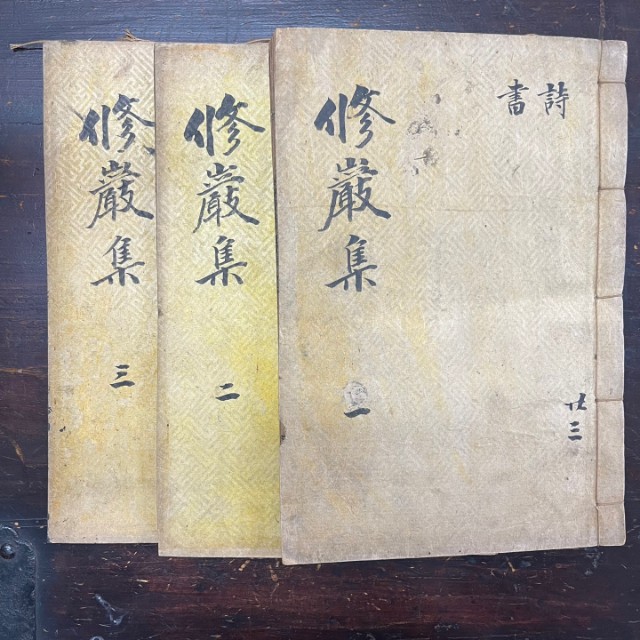 詩
書
修巖集
一
共三
修巖集
二
修巖集
三